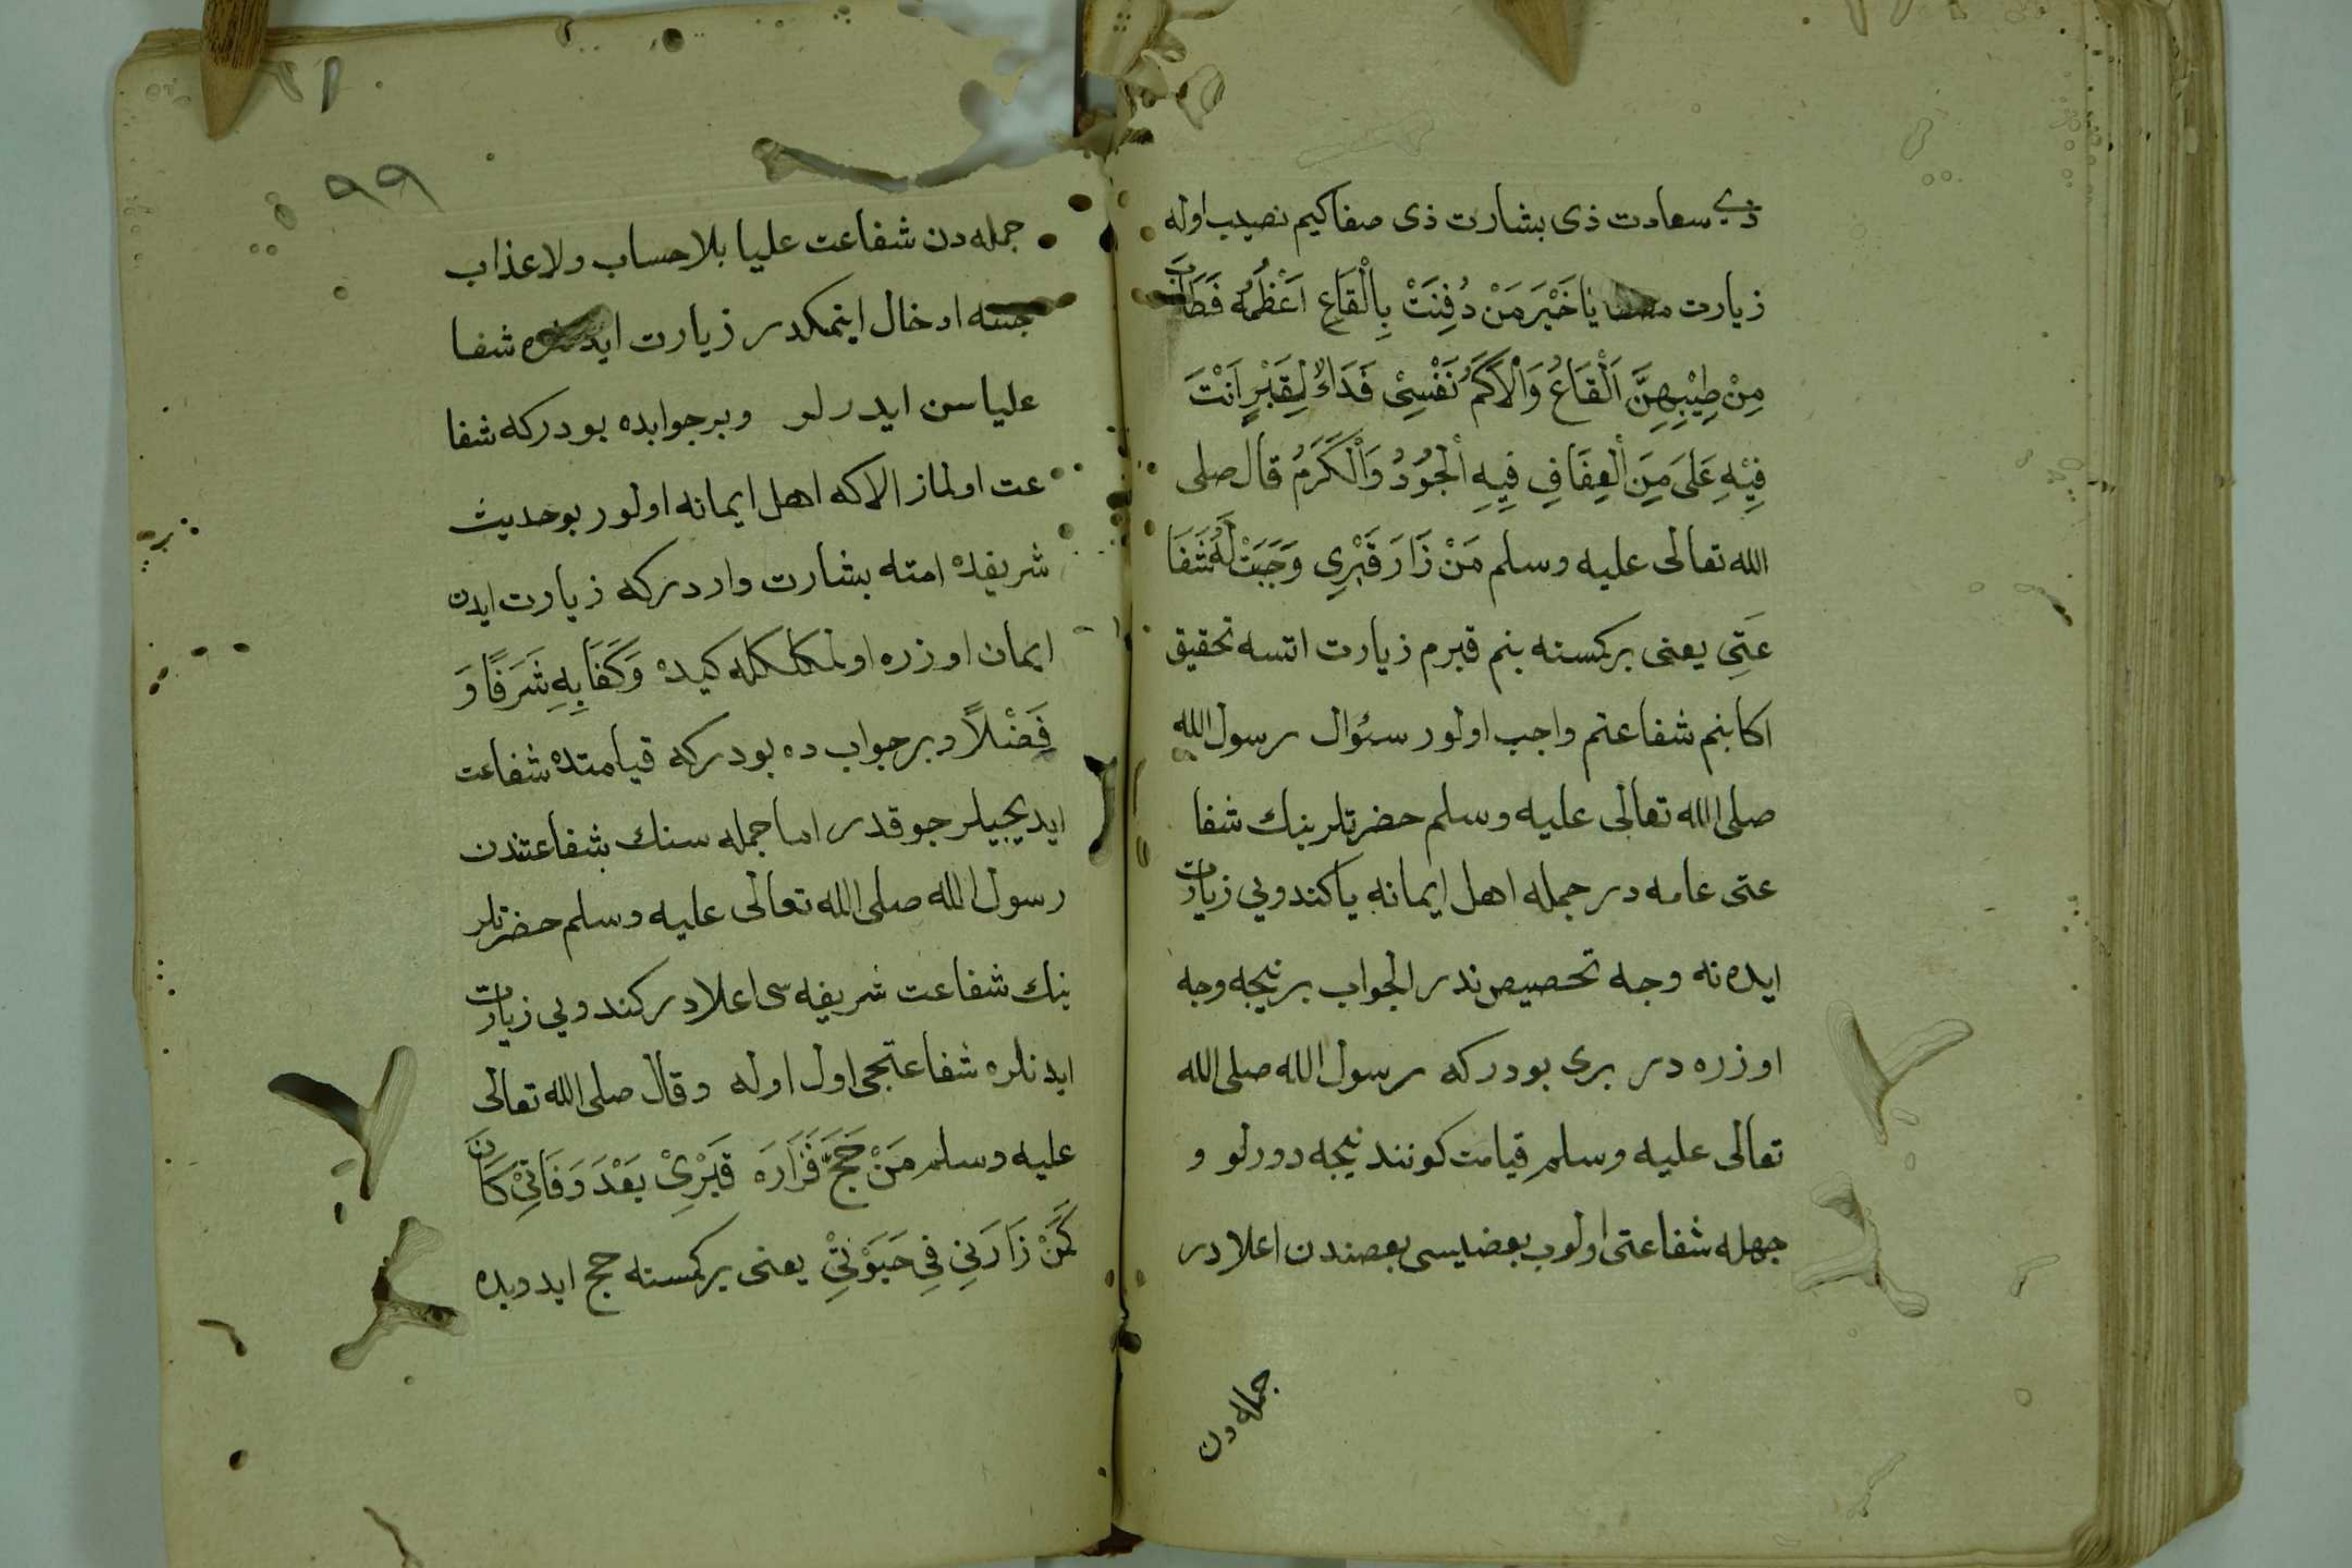 ذی سعادت ذی بشارت ذی صفا كیم نصیب اوله
زیارت یَا خَیْرَ مَنْ دُفِنَتْ بِالْقَاعِ اَعْظُمُه فَطَابَ
مِنْ طِیْبِهِنَّ اَلْقَاعُ وَالْاَكَمُ نَفْسِیْ فَدَاءٌ لِقَبْرٍ اَنْتَ
فِیْهِ اَلْعِفَافِ فِیهِ اَلْجُوْدُ وَالْكَرَمُ قال صلی
الله تعالی علیه وسلم مَنْ زَارَ قَبْرِی وَجَبَتْ لَهُ شَفَا
عَتِی یعنی بركمسنه بنم قبرم زیارت اتسه تحقیق
اكا بنم شفاعتم واجب اولور سئوال رسول الله
صلی الله تعالی علیه وسلم حضرتلرینك شفا
عتی عامه در جمله اهل ایمانه یا كندویی زیارت
ایده نه وجه تخصیص ندر الجواب بر نیجه وجه
اوزره در بری بودركه رسول الله صلی الله
تعالی علیه وسلم قیامت كونند نیجه دورلو و
جهله شفاعتی اولوب بعضیسی بعضندن اعلادر
جمله دن
٩٩
جمله دن شفاعت علیا بلا حساب ولا عذاب
جنته ادخال ایتمكدر زیارت ایدنلره شفا
علیاسن ایدرلر وبر جوابده بودركه شفا
عت اولماز الا كه اهل ایمانه اولور بو حدیث
شریفده امته بشارت واردركه زیارت ایدن
ایمان اوزره اولمكلكله كیده وَكَفَا بِهِ شَرَفًا وَ
فَضْلاً وبر جواب ده بودركه قیامتده شفاعت
ایدیجیلر جوقدر اما جمله سنك شفاعتندن
رسول الله صلی الله تعالی علیه وسلم حضرتلر
ینك شفاعت شریفه سی اعلادر كندویی زیارت
ایدنلره شفاعتجی اول اوله وقال صلی الله تعالی
علیه وسلم مَنْ حَجَّ فَزَارَه قَبْرِیْ بَعْدَ وَفَاتِیْ كَانَ
كَمَنْ زَارَنِی فِی حَیَوْتِیْ یعنی بركمسنه حج ایدوبده